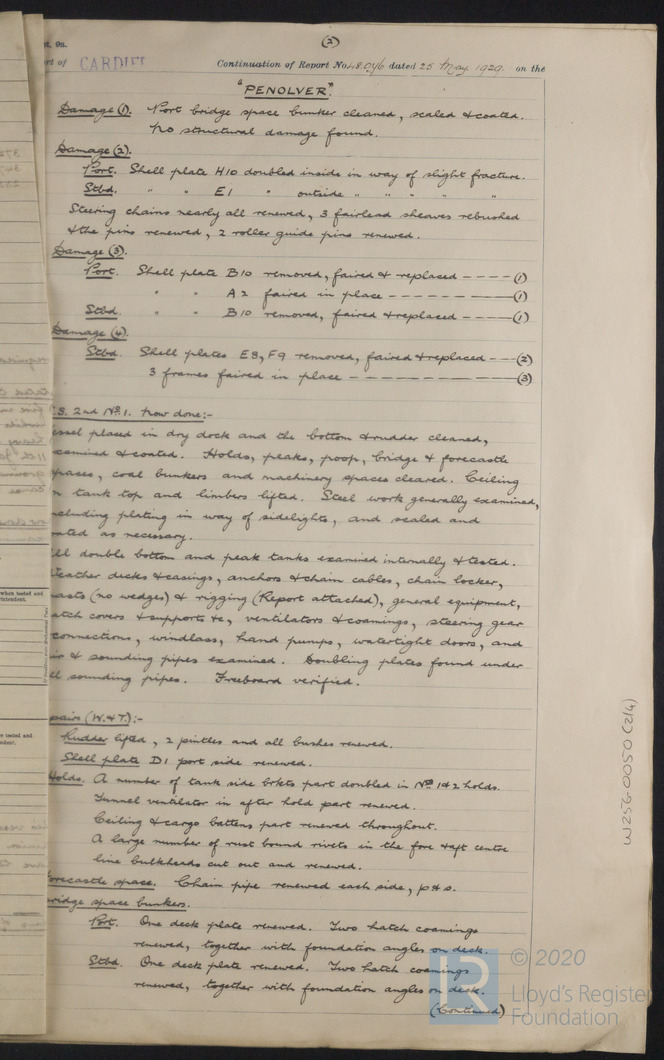 pt. 9a.
(2)
rt of CARDIFF Continuation of Report No. 48.046 dated 25 May 1929. on the
"PENOLVER".
Damage (1). Port bridge space bunker cleaned, scaled & coated.
No structural damage found.
Damage (2).
Port. Shell plate H10 doubled inside in way of slight fracture.
Stbd. " " E1 " outside " " " " "
Steering chains nearly all renewed, 3 fairlead sheaves rebushed
& the pins renewed, 2 roller guide pins renewed.
Damage (3).
Port. Shell plate B10 removed, faired & replaced ---- (1)
" " A2 faired in place ------- (1)
Stbd. " " B10 removed, faired & replaced ---- (1)
Damage (4).
Stbd. Shell plates E8, F9 removed, faired & replaced --- (2)
3 frames faired in place --------- (3)
S.S. 2nd No. 1. Now done:-
essel placed in dry dock and the bottom & rudder cleaned,
xamined & coated. Holds, peaks, poop, bridge & forecastle
spaces, coal bunkers and machinery spaces cleared. Ceiling
n tank top and limbers lifted. Steel work generally examined,
ncluding plating in way of sidelights, and scaled and
oated as necessary.
ll double bottom and peak tanks examined internally & tested.
eather decks & casings, anchors & chain cables, chain locker,
asts (no wedges) & rigging (Report attached), general equipment,
atch covers & supports &c, ventilators & coamings, steering gear
connections, windlass, hand pumps, watertight doors, and
ir & sounding pipes examined. Doubling plates found under
ll sounding pipes. Freeboard verified.
pairs (W.&T.):-
Rudder lifted, 2 pintles and all bushes renewed.
Shell plate D1 port side renewed.
Holds. A number of tank side brkts part doubled in Nos. 1 & 2 holds.
Tunnel ventilator in after hold part renewed.
Ceiling & cargo battens part renewed throughout.
A large number of rust bound rivets in the fore & aft centre
line bulkheads cut out and renewed.
orecastle space. Chain pipe renewed each side, p & s.
ridge space bunkers.
Port. One deck plate renewed. Two hatch coamings
renewed, together with foundation angles on deck.
Stbd. One deck plate renewed. Two hatch coamings
renewed, together with foundation angles on deck.
(Continued)
W256-0050 (2/4)
LR
© 2020
Lloyd's Register
Foundation